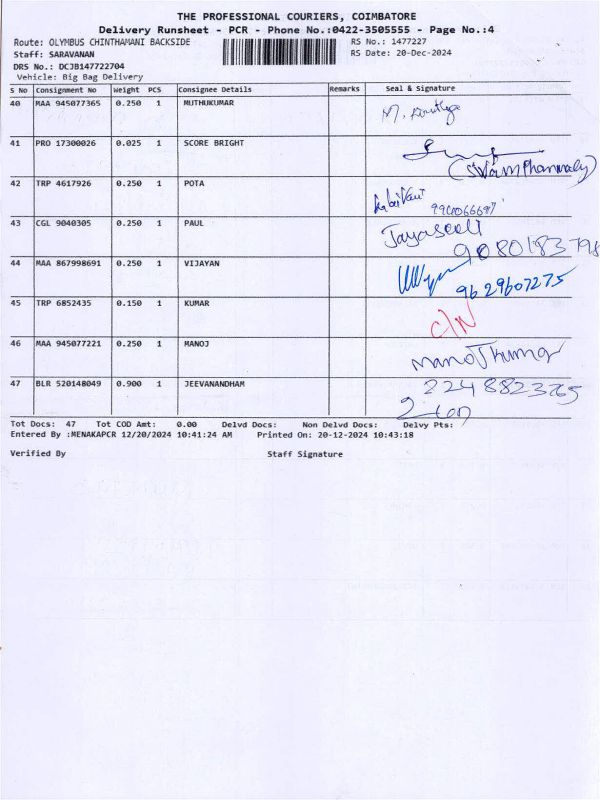 THE PROFESSIONAL COURIERS, COIMBATORE
Delivery Runsheet - PCR - Phone No.:0422-3505555 - Page No.:4
Route: OLYMBUS CHINTHAMANI BACKSIDE RS No.: 1477227
Staff: SARAVANAN RS Date: 20-Dec-2024
DRS No.: DCJB147722704
Vehicle: Big Bag Delivery
S No Consignment No Weight PCS Consignee Details Remarks Seal & Signature
40 MAA 945077365 0.250 1 MUTHUKUMAR M.
41 PRO 17300026 0.025 1 SCORE BRIGHT
42 TRP 4617926 0.250 1 POTA
43 CGL 9040305 0.250 1 PAUL
9080183798
44 MAA 867998691 0.250 1 VIJAYAN
9629607275
45 TRP 6852435 0.150 1 KUMAR
C/N
46 MAA 945077221 0.250 1 MANOJ
Manoj kumar
47 BLR 520148049 0.900 1 JEEVANANDHAM
Tot Docs: 47 Tot COD Amt: 0.00 Delvd Docs: Non Delvd Docs: Delvy Pts:
Entered By :MENAKAPCR 12/20/2024 10:41:24 AM Printed On: 20-12-2024 10:43:18
Verified By Staff Signature